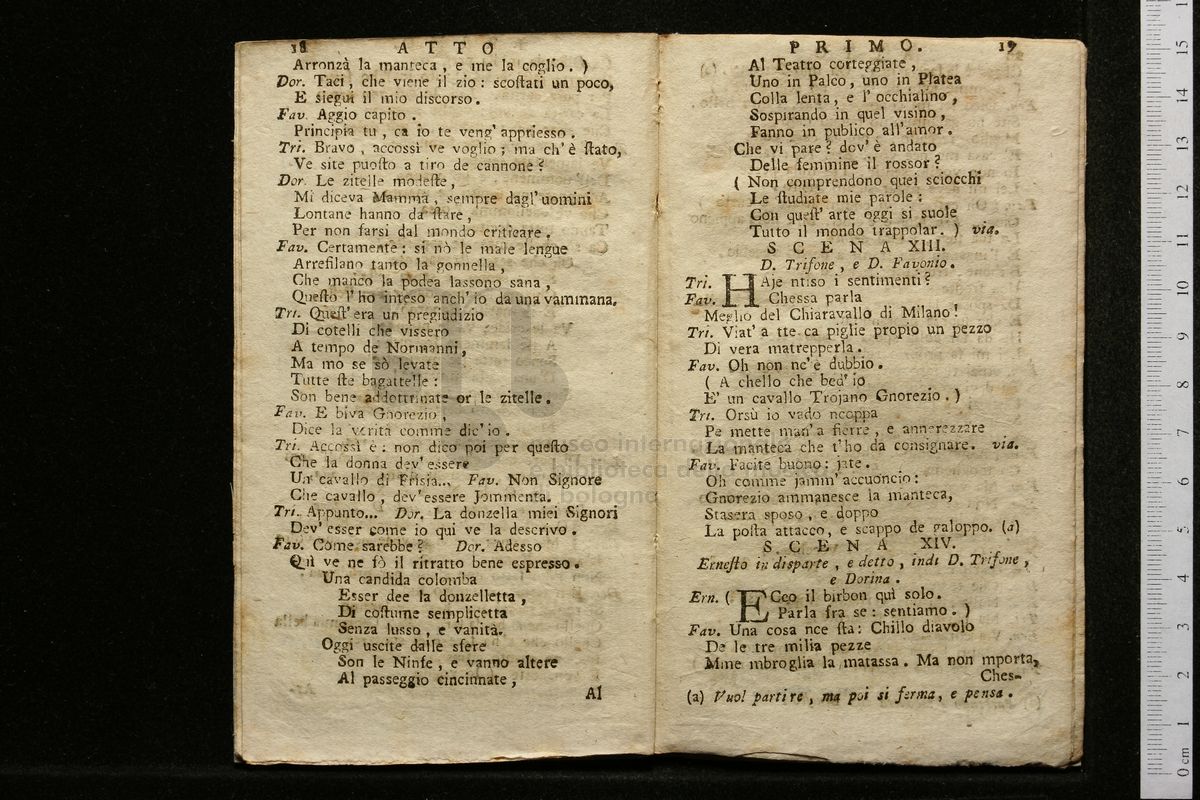 18 ATTO
Arronzà la manteca, e me la coglio. )
Dor. Taci, che viene il zio: scoſtati un poco,
E siegui il mio discorso.
Fav. Aggio capito.
Principia tu, ca io te veng' appriesso.
Tri. Bravo, accossì ve voglio; ma ch' è ſtato,
Ve site puoſto a tiro de cannone?
Dor. Le zitelle modeſte,
Mi diceva Mamma, sempre dagl' uomini
Lontane hanno da ſtare,
Per non farsi dal mondo criticare.
Fav. Certamente: si nò le male lengue
Arrefilano tanto la gonnella,
Che manco la podea lassono sana,
Queſto l' ho inteso anch' io da una vammana.
Tri. Queſt' era un pregiudizio
Di cotelli che vissero
A tempo de Normanni,
Ma mo se sò levate
Tutte ſte bagattelle:
Son bene addottrinate or le zitelle.
Fav. E biva Gnorezio,
Dice la verità comme dic' io.
Tri. Accossì è: non dico poi per queſto
Che la donna dev' essere
Un cavallo di Frisia... Fav. Non Signore
Che cavallo, dev' essere Jommenta.
Tri. Appunto... Dor. La donzella miei Signori
Dev' esser come io qui ve la descrivo.
Fav. Come sarebbe? Dor. Adesso
Quì ve ne fò il ritratto bene espresso.
Una candida colomba
Esser dee la donzelletta,
Di coſtume semplicetta
Senza lusso, e vanità.
Oggi uscite dalle sfere
Son le Ninfe, e vanno altere
Al passeggio cincinnate,
Al
PRIMO. 19
Al Teatro corteggiate,
Uno in Palco, uno in Platea
Colla lenta, e l' occhialino,
Sospirando in quel visino,
Fanno in publico all' amor.
Che vi pare? dov' è andato
Delle femmine il rossor?
( Non comprendono quei sciocchi
Le ſtudiate mie parole:
Con queſt' arte oggi si suole
Tutto il mondo trappolar. ) via.
SCENA XIII.
D. Trifone, e D. Favonio.
Tri. HAje ntiso i sentimenti?
Fav. Chessa parla
Meglio del Chiaravallo di Milano!
Tri. Viat' a tte ca piglie propio un pezzo
Di vera matrepperla.
Fav. Oh non nc' è dubbio.
( A chello che bed' io
E' un cavallo Trojano Gnorezio. )
Tri. Orsù io vado ncoppa
Pe mette man' a fierre, e annerezzare
La manteca che t' ho da consignare. via.
Fav. Facite buono: jate.
Oh comme jamm' accuoncio:
Gnorezio ammanesce la manteca,
Stasera sposo, e doppo
La poſta attacco, e scappo de galoppo. (a)
SCENA XIV.
Erneſto in disparte, e detto, indi D. Trifone,
e Dorina.
Ern. ( ECco il birbon quì solo.
Parla fra se: sentiamo. )
Fav. Una cosa nce ſta: Chillo diavolo
De le tre milia pezze
Mme mbroglia la matassa. Ma non mporta,
Ches-
(a) Vuol partire, ma poi si ferma, e pensa.